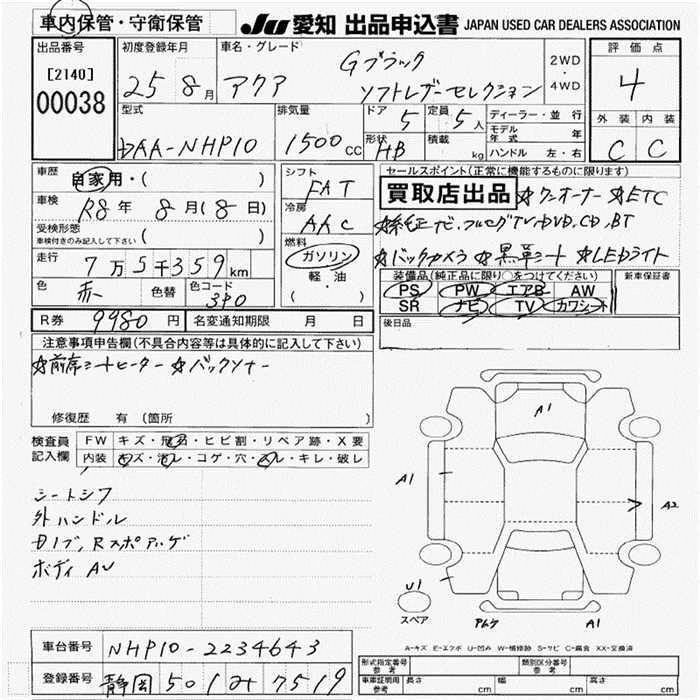 車内保管・守衛保管
JU 愛知 出品申込書 JAPAN USED CAR DEALERS ASSOCIATION
出品番号 [2140] 00038
初度登録年月 25 8月
車名・グレード アクア Gブラック ソフトレザーセレクション
2WD・4WD
評価点 4
外装 C 内装 C
型式 DAA-NHP10
排気量 1500cc
ドア 5 定員 5人
形状 HB 積載 kg
ディーラー・並行
モデル年式 年
ハンドル 左・右
車歴 自家用・( )
車検 R8年 8月(8日)
受検形態 車検付きのみ記入して下さい ( )
走行 7万5千359km
色 赤 色替 色コード 3P0
シフト FAT
冷房 AAC
燃料 ガソリン 軽・油 ( )
セールスポイント(正常に機能するものに限ります)
買取店出品 ☆ワンオーナー ☆ETC
☆純正ナビ、フルセグTV、DVD、CD、BT
☆バックカメラ ☆黒革シート ☆LEDライト
装備品(純正品に限り○をつけてください) 新車保証書
PS PW エアB AW
SR ナビ TV カワシート
R券 9980円 名変通知期限 月 日
後日品
注意事項申告欄(不具合内容等は具体的に記入して下さい)
☆前席シートヒーター ☆バックソナー
修復歴 有(箇所 )
検査員記入欄 FW キズ・飛石・ヒビ割・リペア跡・X要
内装 キズ・汚レ・コゲ・穴・スレ・キレ・破レ
シートシワ
外ハンドル
ボディAU
A1
A1
A2
U1
スペア
A1
A-キズ E-エクボ U-凹み W-補修跡 S-サビ C-腐食 XX-交換済
車台番号 NHP10-2234643
登録番号 静岡 501 み 7519
形式指定番号 参考 類別区分番号 参考
車庫証明用 参考 長さ cm 幅 cm 高さ cm